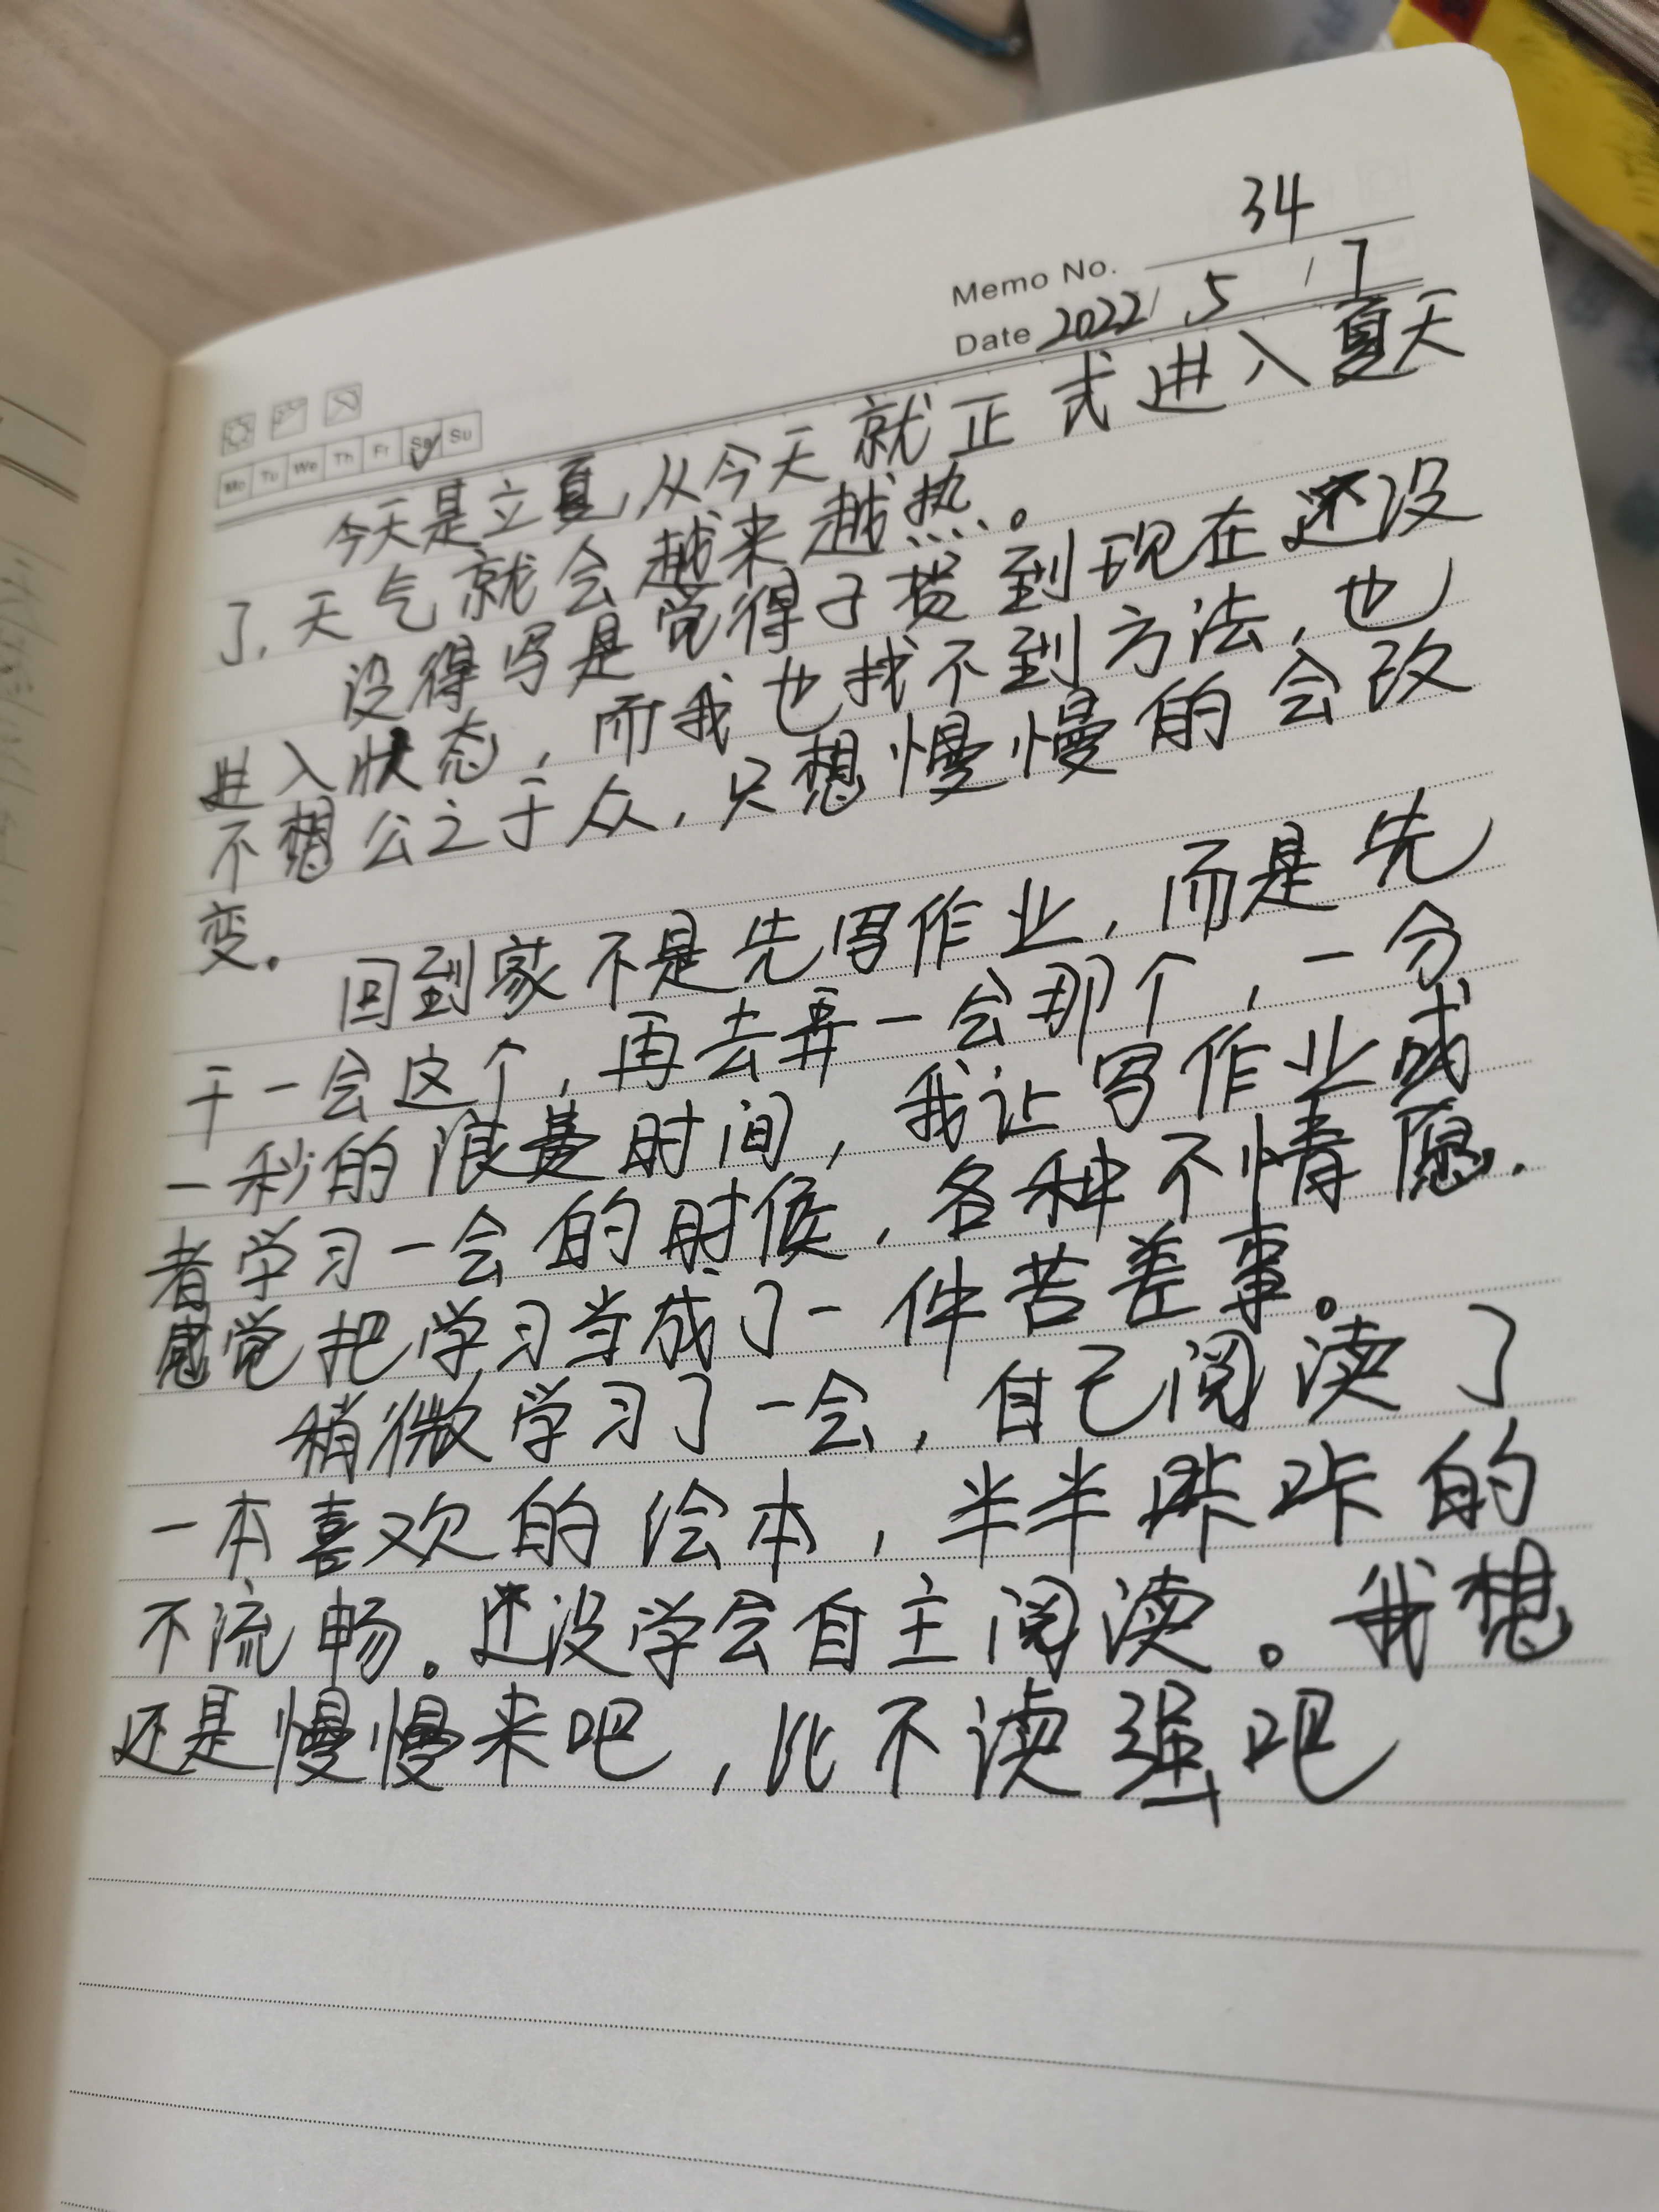 34
Memo No.
Date 2022/ 5 / 7
Mo Tu We Th Fr Sa Su
今天是立夏,从今天就正式进入夏天
了,天气就会越来越热。
没得写是觉得子贺到现在还没
进入状态,而我也找不到方法,也
不想公之于众,只想慢慢的会改
变。
回到家不是先写作业,而是先
干一会这个,再去弄一会那个,一分
一秒的浪曼时间,我让写作业或
者学习一会的时候,各种不情愿.
感觉把学习当成了一件苦差事。
稍微学习了一会,自己阅读了
一本喜欢的绘本,半半咔咔的
不流畅。还没学会自主阅读。我想
还是慢慢来吧,比不读强吧